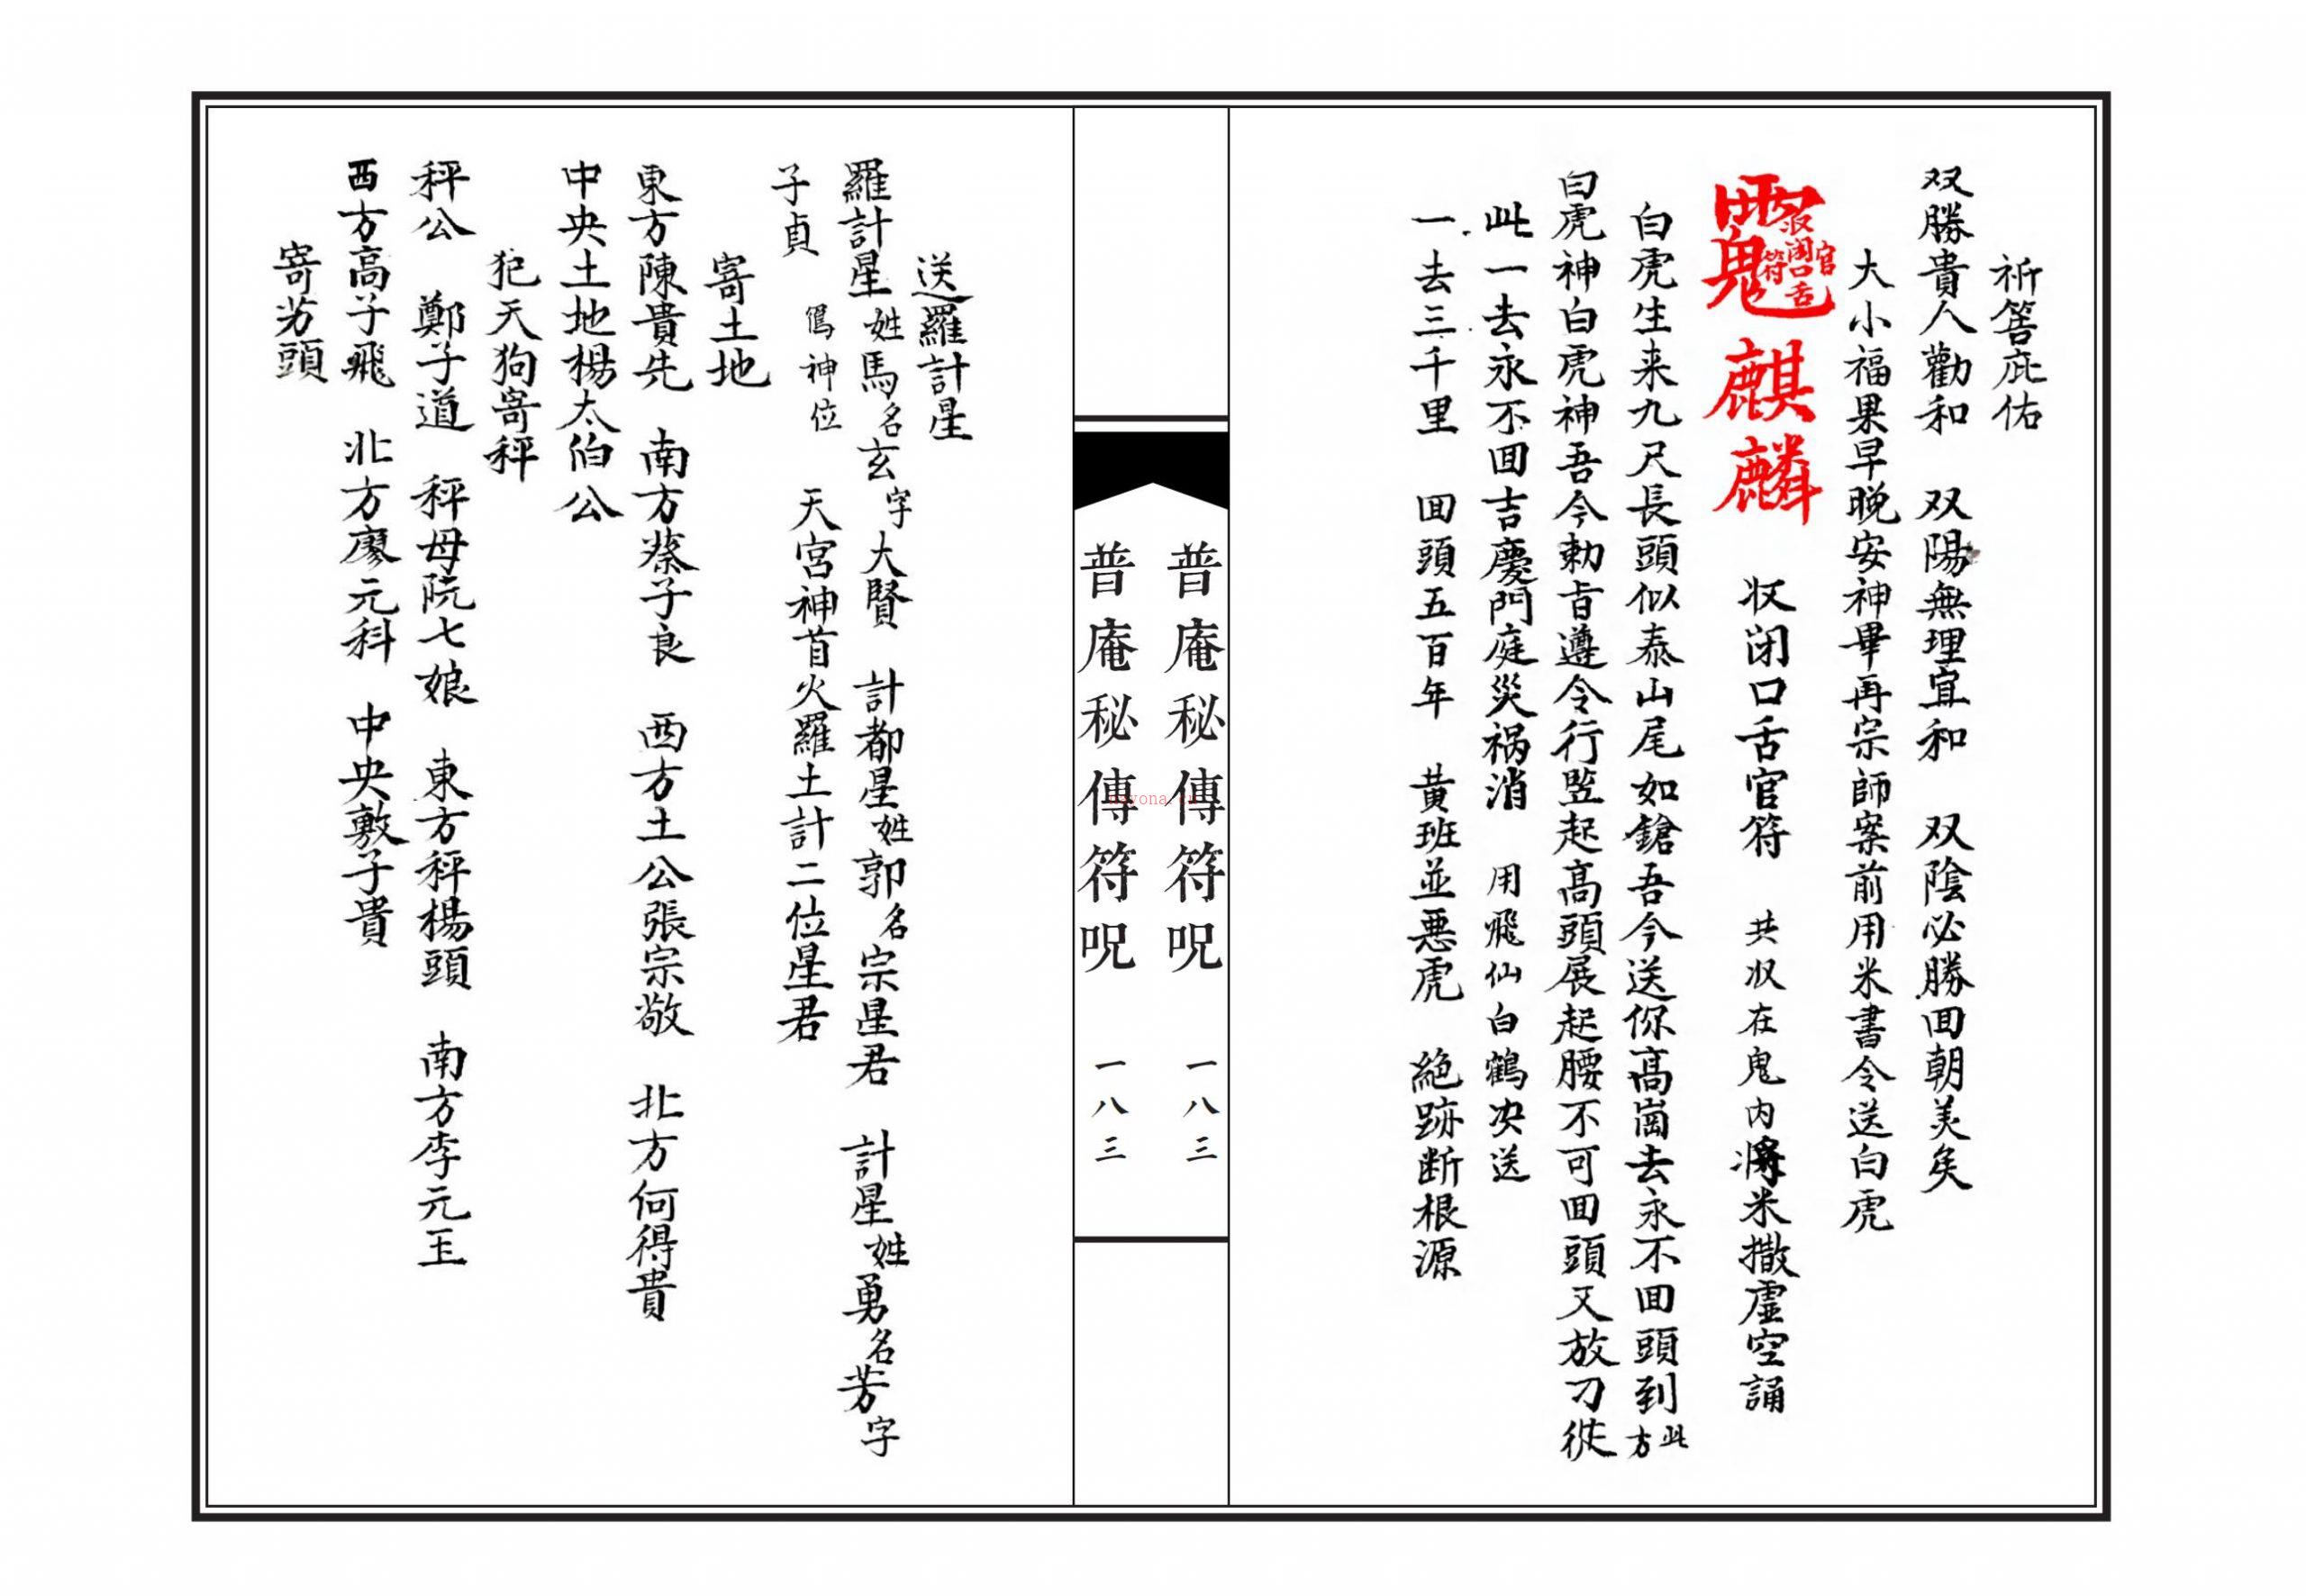 祈筶庇佑
双勝貴人勸和 双陽無理宜和 双陰必勝囬朝美矣
大小福果早晚安神畢再宗師案前用米書令送白虎
麒麟 收闭口舌官符 共収在鬼内將米撒虛空誦
白虎生来九尺長頭似泰山尾如鎗吾今送你高崗去永不囬頭到此方
白虎神白虎神吾今勅旨遵令行竖起高頭展起腰不可囬頭又放刁從
此一去永不囬吉慶門庭災祸消 用飛仙白鶴决送
一去三千里 囬頭五百年 黄班並悪虎 絶跡断根源
普庵秘傳符呪 一八三
普庵秘傳符呪 一八三
送羅計星
羅計星姓馬名玄字大賢 計都星姓郭名宗星君 計星姓勇名芳字
子貞 爲神位 天宮神首火羅土計二位星君
寄土地
東方陳貴先 南方蔡子良 西方土公張宗敬 北方何得貴
中央土地楊太伯公
犯天狗寄秤
秤公 鄭子道 秤母阮七娘 東方秤楊頭 南方李元玉
西方高子飛 北方廖元科 中央敷子貴
寄艻頭